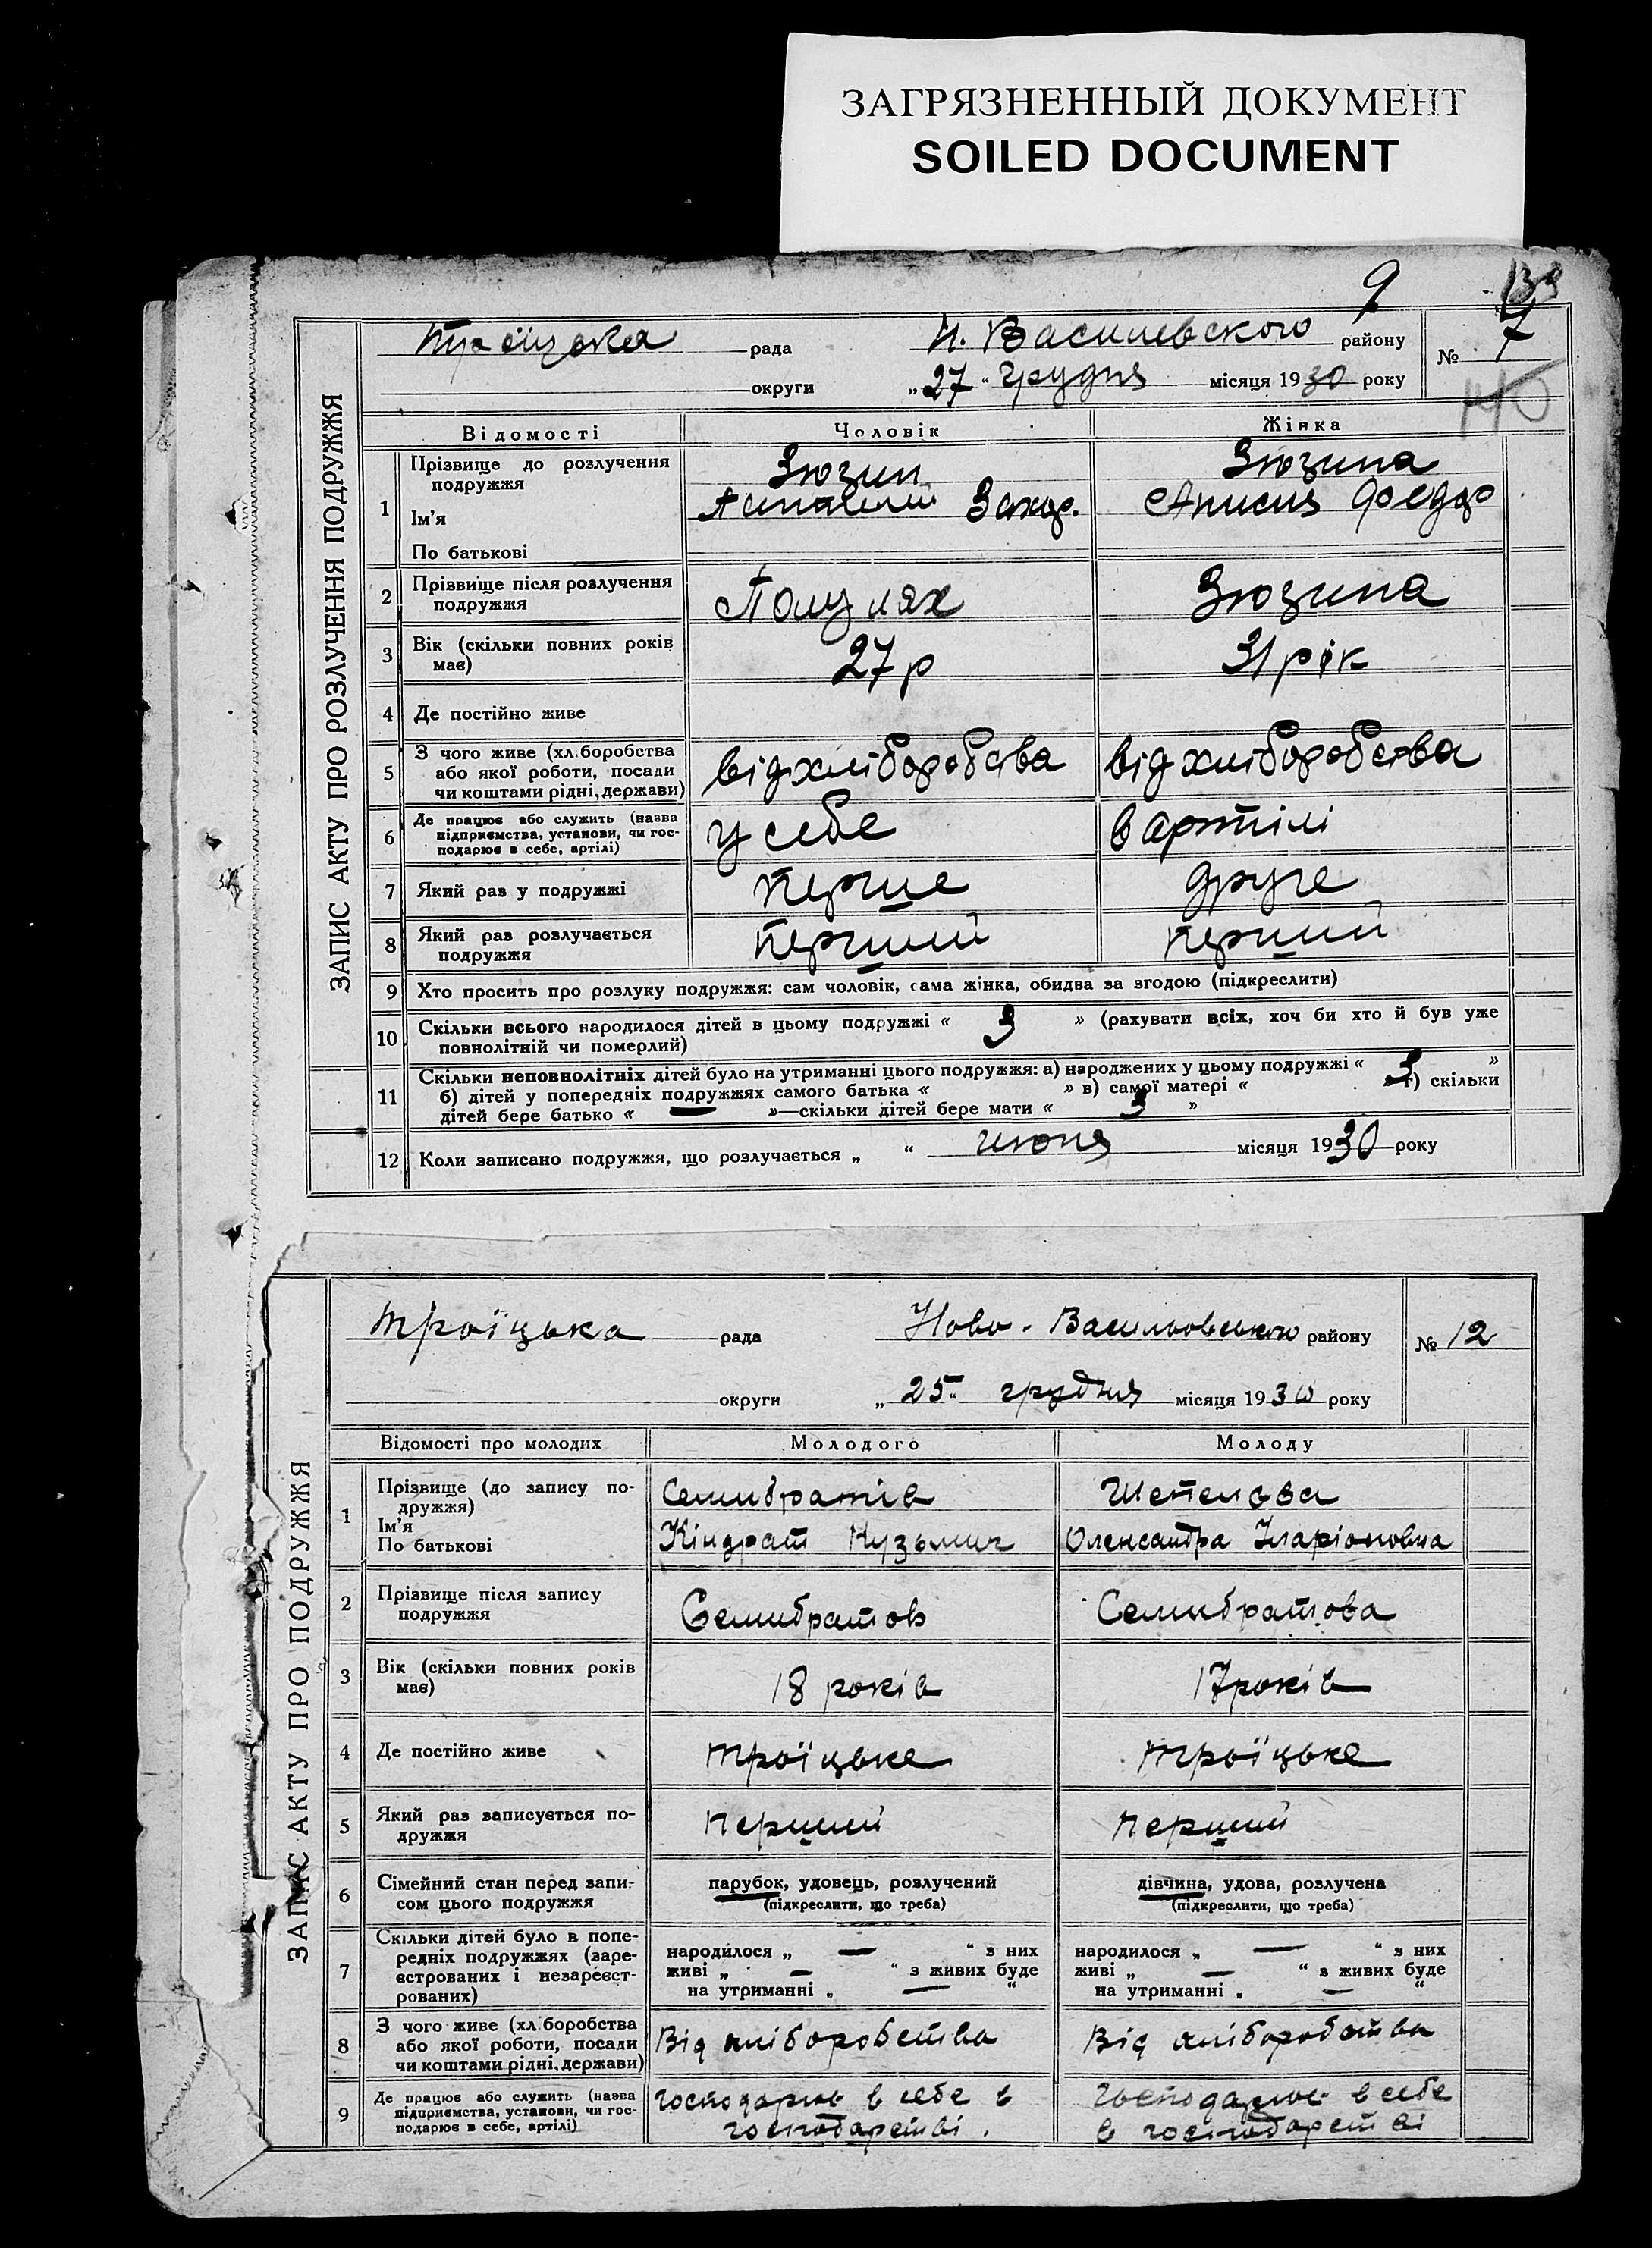 ЗАГРЯЗНЕННЫЙ ДОКУМЕНТ
SOILED DOCUMENT
9
ЗАПИС АКТУ ПРО РОЗЛУЧЕННЯ ПОДРУЖЖЯ
Троїцька рада Н. Василевского району № 7
округи „ 27 “ грудня місяця 1930 року
140
Відомості Чоловік Жінка
1 Прізвище до розлучення подружжя Зюзин Зюзина
Ім'я Захар. Анисия Федор
По батькові
2 Прізвище після розлучення подружжя Полулях Зюзина
3 Вік (скільки повних років має) 27 р 31 рік
4 Де постійно живе
5 З чого живе (хліборобства або якої роботи, посади чи коштами рідні, держави) від хліборобства від хліборобства
6 Де працює або служить (назва підприємства, установи, чи господарює в себе, артілі) у себе в артілі
7 Який раз у подружжі перше друге
8 Який раз розлучається подружжя перший перший
9 Хто просить про розлуку подружжя: сам чоловік, сама жінка, обидва за згодою (підкреслити)
10 Скільки всього народилося дітей в цьому подружжі « 3 » (рахувати всіх, хоч би хто й був уже
повнолітній чи померлий)
11 Скільки неповнолітніх дітей було на утриманні цього подружжя: а) народжених у цьому подружжі « 3 »
б) дітей у попередніх подружжях самого батька « » в) самої матері « » г) скільки
дітей бере батько « — »—скільки дітей бере мати « 3 »
12 Коли записано подружжя, що розлучається „ “ июня місяця 1930 року
ЗАПИС АКТУ ПРО ПОДРУЖЖЯ
Троїцька рада Ново-Васильовського району № 12
округи „ 25 “ грудня місяця 1930 року
Відомості про молодих Молодого Молоду
1 Прізвище (до запису подружжя) Семибратів Шепелєва
Ім'я По батькові Кіндрат Кузьмич Олександра Іларіоновна
2 Прізвище після запису подружжя Семибратов Семибратова
3 Вік (скільки повних років має) 18 років 17 років
4 Де постійно живе Троїцьке Троїцьке
5 Який раз записується подружжя перший перший
6 Сімейний стан перед записом цього подружжя парубок, удовець, розлучений дівчина, удова, розлучена
(підкреслити, що треба) (підкреслити, що треба)
7 Скільки дітей було в попередніх подружжях (зареєстрованих і незареєстрованих)
народилося „ — “ з них народилося „ — “ з них
живі „ — “ з живих буде живі „ — “ з живих буде
на утриманні „ — “ на утриманні „ — “
8 З чого живе (хліборобства або якої роботи, посади чи коштами рідні, держави) Від хліборобства Від хліборобства
9 Де працює або служить (назва підприємства, установи, чи господарює в себе, артілі) Господарює в себе в господарстві. Господарює в себе в господарстві